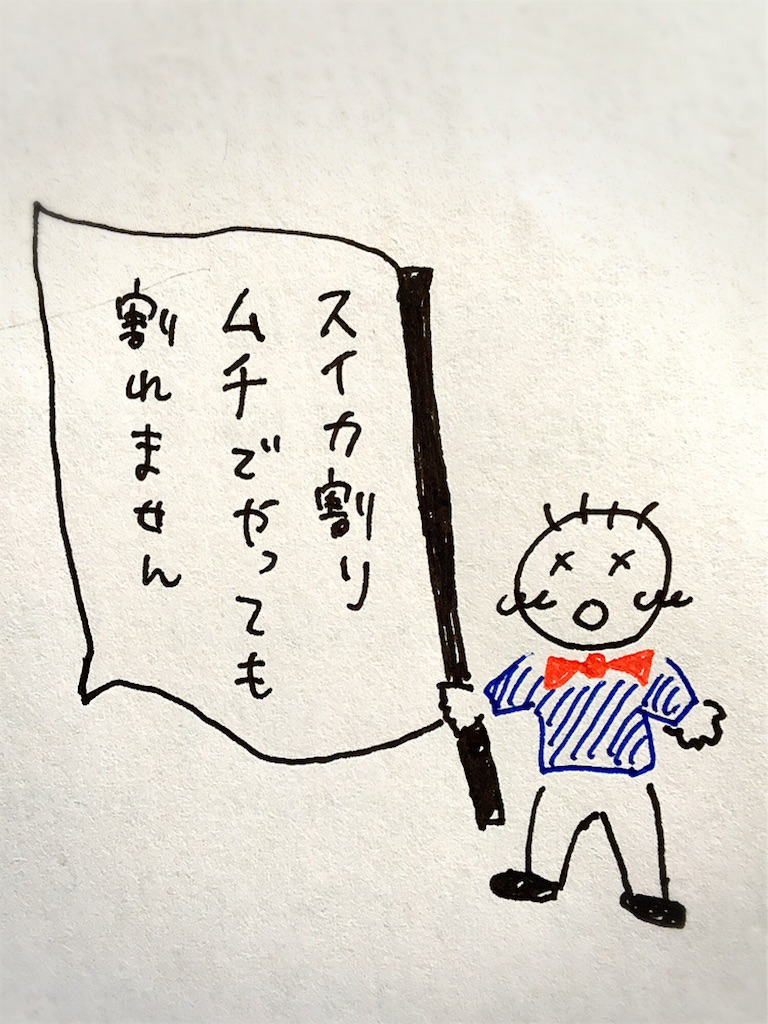 スイカ割り
ムチでやっても
割れません